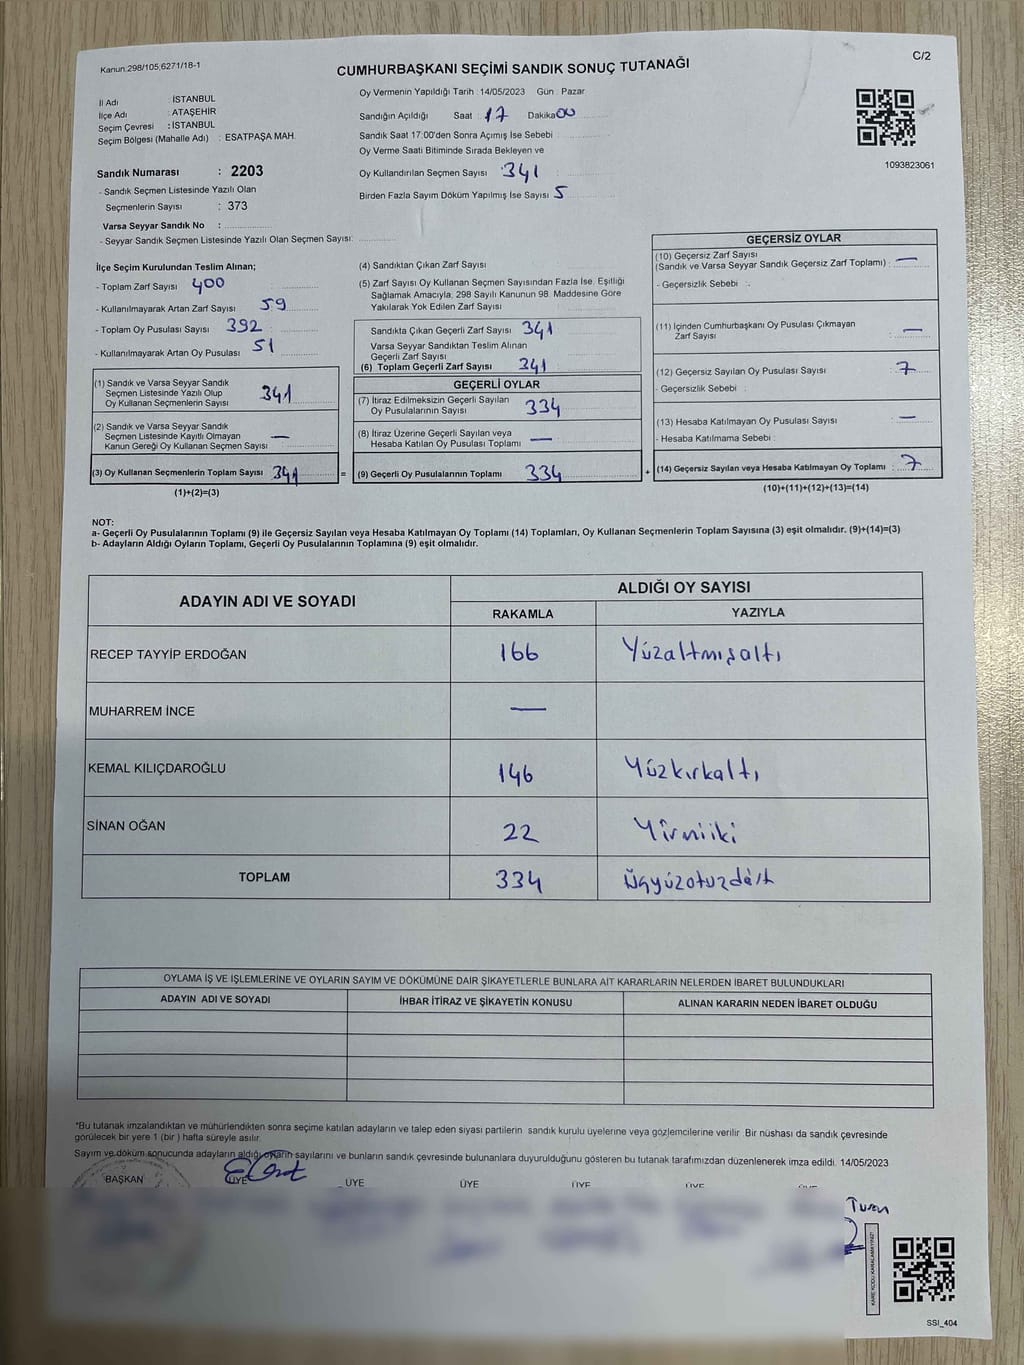 Kanun:298/105,6271/18-1
C/2
CUMHURBAŞKANI SEÇİMİ SANDIK SONUÇ TUTANAĞI
İl Adı : İSTANBUL
İlçe Adı : ATAŞEHİR
Seçim Çevresi : İSTANBUL
Seçim Bölgesi (Mahalle Adı) : ESATPAŞA MAH.
Sandık Numarası : 2203
- Sandık Seçmen Listesinde Yazılı Olan
Seçmenlerin Sayısı : 373
Varsa Seyyar Sandık No :
- Seyyar Sandık Seçmen Listesinde Yazılı Olan Seçmen Sayısı:
Oy Vermenin Yapıldığı Tarih : 14/05/2023 Gün : Pazar
Sandığın Açıldığı Saat : 17 Dakika 00
Sandık Saat 17:00'den Sonra Açımış İse Sebebi :
Oy Verme Saati Bitiminde Sırada Bekleyen ve
Oy Kullandırılan Seçmen Sayısı : 341
Birden Fazla Sayım Döküm Yapılmış İse Sayısı 5
1093823061
İlçe Seçim Kurulundan Teslim Alınan;
- Toplam Zarf Sayısı 400
- Kullanılmayarak Artan Zarf Sayısı 59
- Toplam Oy Pusulası Sayısı 392
- Kullanılmayarak Artan Oy Pusulası 51
(1) Sandık ve Varsa Seyyar Sandık
Seçmen Listesinde Yazılı Olup
Oy Kullanan Seçmenlerin Sayısı 341
(2) Sandık ve Varsa Seyyar Sandık
Seçmen Listesinde Kayıtlı Olmayan
Kanun Gereği Oy Kullanan Seçmen Sayısı —
(3) Oy Kullanan Seçmenlerin Toplam Sayısı 341 =
(1)+(2)=(3)
(4) Sandıktan Çıkan Zarf Sayısı
(5) Zarf Sayısı Oy Kullanan Seçmen Sayısından Fazla İse, Eşitliği
Sağlamak Amacıyla; 298 Sayılı Kanunun 98. Maddesine Göre
Yakılarak Yok Edilen Zarf Sayısı
Sandıkta Çıkan Geçerli Zarf Sayısı 341
Varsa Seyyar Sandıktan Teslim Alınan
Geçerli Zarf Sayısı
(6) Toplam Geçerli Zarf Sayısı 341
GEÇERLİ OYLAR
(7) İtiraz Edilmeksizin Geçerli Sayılan
Oy Pusulalarının Sayısı 334
(8) İtiraz Üzerine Geçerli Sayılan veya
Hesaba Katılan Oy Pusulası Toplamı —
(9) Geçerli Oy Pusulalarının Toplamı 334 +
GEÇERSİZ OYLAR
(10) Geçersiz Zarf Sayısı
(Sandık ve Varsa Seyyar Sandık Geçersiz Zarf Toplamı) : —
- Geçersizlik Sebebi :
(11) İçinden Cumhurbaşkanı Oy Pusulası Çıkmayan
Zarf Sayısı : —
(12) Geçersiz Sayılan Oy Pusulası Sayısı : 7
- Geçersizlik Sebebi :
(13) Hesaba Katılmayan Oy Pusulası Sayısı : —
- Hesaba Katılmama Sebebi :
(14) Geçersiz Sayılan veya Hesaba Katılmayan Oy Toplamı : 7
(10)+(11)+(12)+(13)=(14)
NOT:
a- Geçerli Oy Pusulalarının Toplamı (9) ile Geçersiz Sayılan veya Hesaba Katılmayan Oy Toplamı (14) Toplamları, Oy Kullanan Seçmenlerin Toplam Sayısına (3) eşit olmalıdır. (9)+(14)=(3)
b- Adayların Aldığı Oyların Toplamı, Geçerli Oy Pusulalarının Toplamına (9) eşit olmalıdır.
ADAYIN ADI VE SOYADI ALDIĞI OY SAYISI
RAKAMLA YAZIYLA
RECEP TAYYİP ERDOĞAN 166 Yüzaltmışaltı
MUHARREM İNCE —
KEMAL KILIÇDAROĞLU 146 Yüzkırkaltı
SİNAN OĞAN 22 Yirmiiki
TOPLAM 334 Üçyüzotuzdört
OYLAMA İŞ VE İŞLEMLERİNE VE OYLARIN SAYIM VE DÖKÜMÜNE DAİR ŞİKAYETLERLE BUNLARA AİT KARARLARIN NELERDEN İBARET BULUNDUKLARI
ADAYIN ADI VE SOYADI İHBAR İTİRAZ VE ŞİKAYETİN KONUSU ALINAN KARARIN NEDEN İBARET OLDUĞU
*Bu tutanak imzalandıktan ve mühürlendikten sonra seçime katılan adayların ve talep eden siyasi partilerin sandık kurulu üyelerine veya gözlemcilerine verilir. Bir nüshası da sandık çevresinde
görülecek bir yere 1 (bir ) hafta süreyle asılır.
Sayım ve döküm sonucunda adayların aldığı oyların sayılarını ve bunların sandık çevresinde bulunanlara duyurulduğunu gösteren bu tutanak tarafımızdan düzenlenerek imza edildi. 14/05/2023
BAŞKAN ÜYE ÜYE ÜYE ÜYE ÜYE
KARE KODU KARALAMAYINIZ!
SSI_404